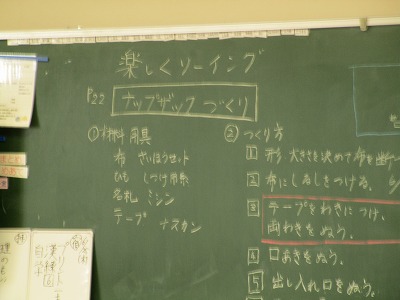 楽しくソーイング
P22 ナップザックづくり
① 材料 用具
布 さいほうセット
ひも しつけ用糸
名札 ミシン
テープ ナスカン
② つくり方
1 形、大きさを決めて布を
2 布にしるしをつける。
3 テープをわきにつけ、
両わきをぬう。
4 口あきをぬう。
5 出し入れ口をぬう。